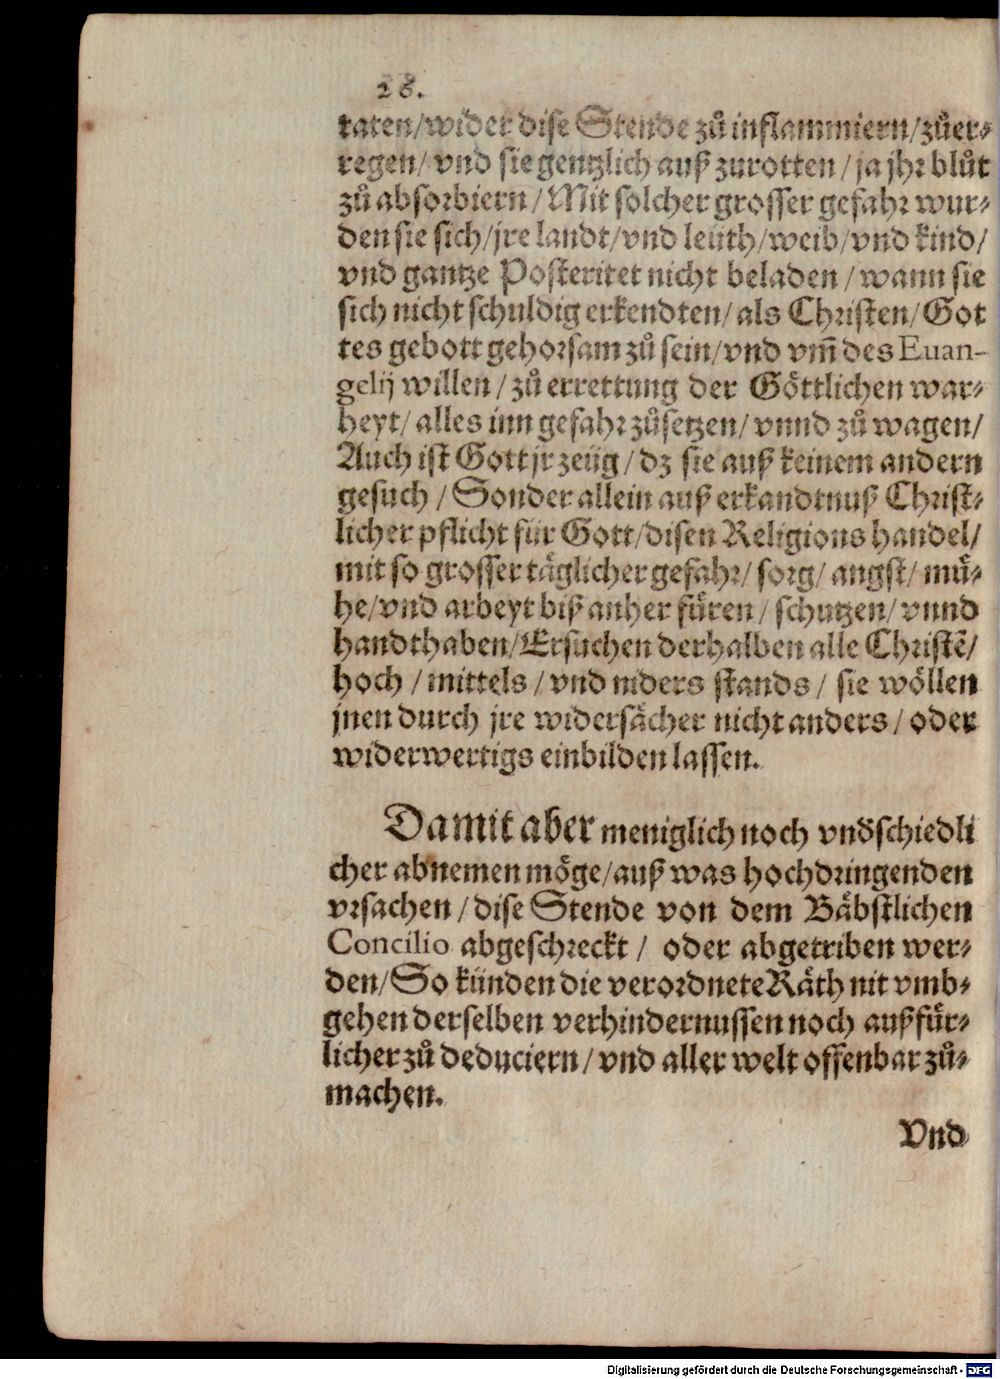 26.
taten/wider dise Stende zů inflammiern/zůer⸗
regen/ vnd sie gentzlich auß zurotten / ja jhr blůt
zů absorbiern / Mit solcher grosser gefahr wur⸗
den sie sich/jre landt/vnd leüth/weib/vnd kind/
vnd gantze Posteritet nicht beladen / wann sie
sich nicht schuldig erkendten/ als Christen/ Got
tes gebott gehorsam zů sein/vnd vm̃ des Euan-
gelij willen / zů errettung der Göttlichen war⸗
heyt/ alles inn gefahr zůsetzen/ vnnd zů wagen/
Auch ist Gott jr zeüg / dz sie auß keinem andern
gesuch / Sonder allein auß erkandtnuß Christ⸗
licher pflicht für Gott/disen Religions handel/
mit so grosser täglicher gefahr/ sorg/ angst/ mü⸗
he/vnd arbeyt biß anher füren / schutzen/ vnnd
handthaben/Ersuchen derhalben alle Christẽ/
hoch / mittels / vnd niders stands / sie wöllen
jnen durch jre widersächer nicht anders / oder
widerwertigs einbilden lassen.
Damit aber meniglich noch vnd̕schiedli
cher abnemen möge/auß was hochdringenden
vrsachen / dise Stende von dem Bäbstlichen
Concilio abgeschreckt / oder abgetriben wer⸗
den/So künden die verordnete Räth nit vmb⸗
gehen derselben verhindernussen noch außfür⸗
licher zů deduciern / vnd aller welt offenbar zů⸗
machen.
Vnd
Digitalisierung gefördert durch die Deutsche Forschungsgemeinschaft - DFG